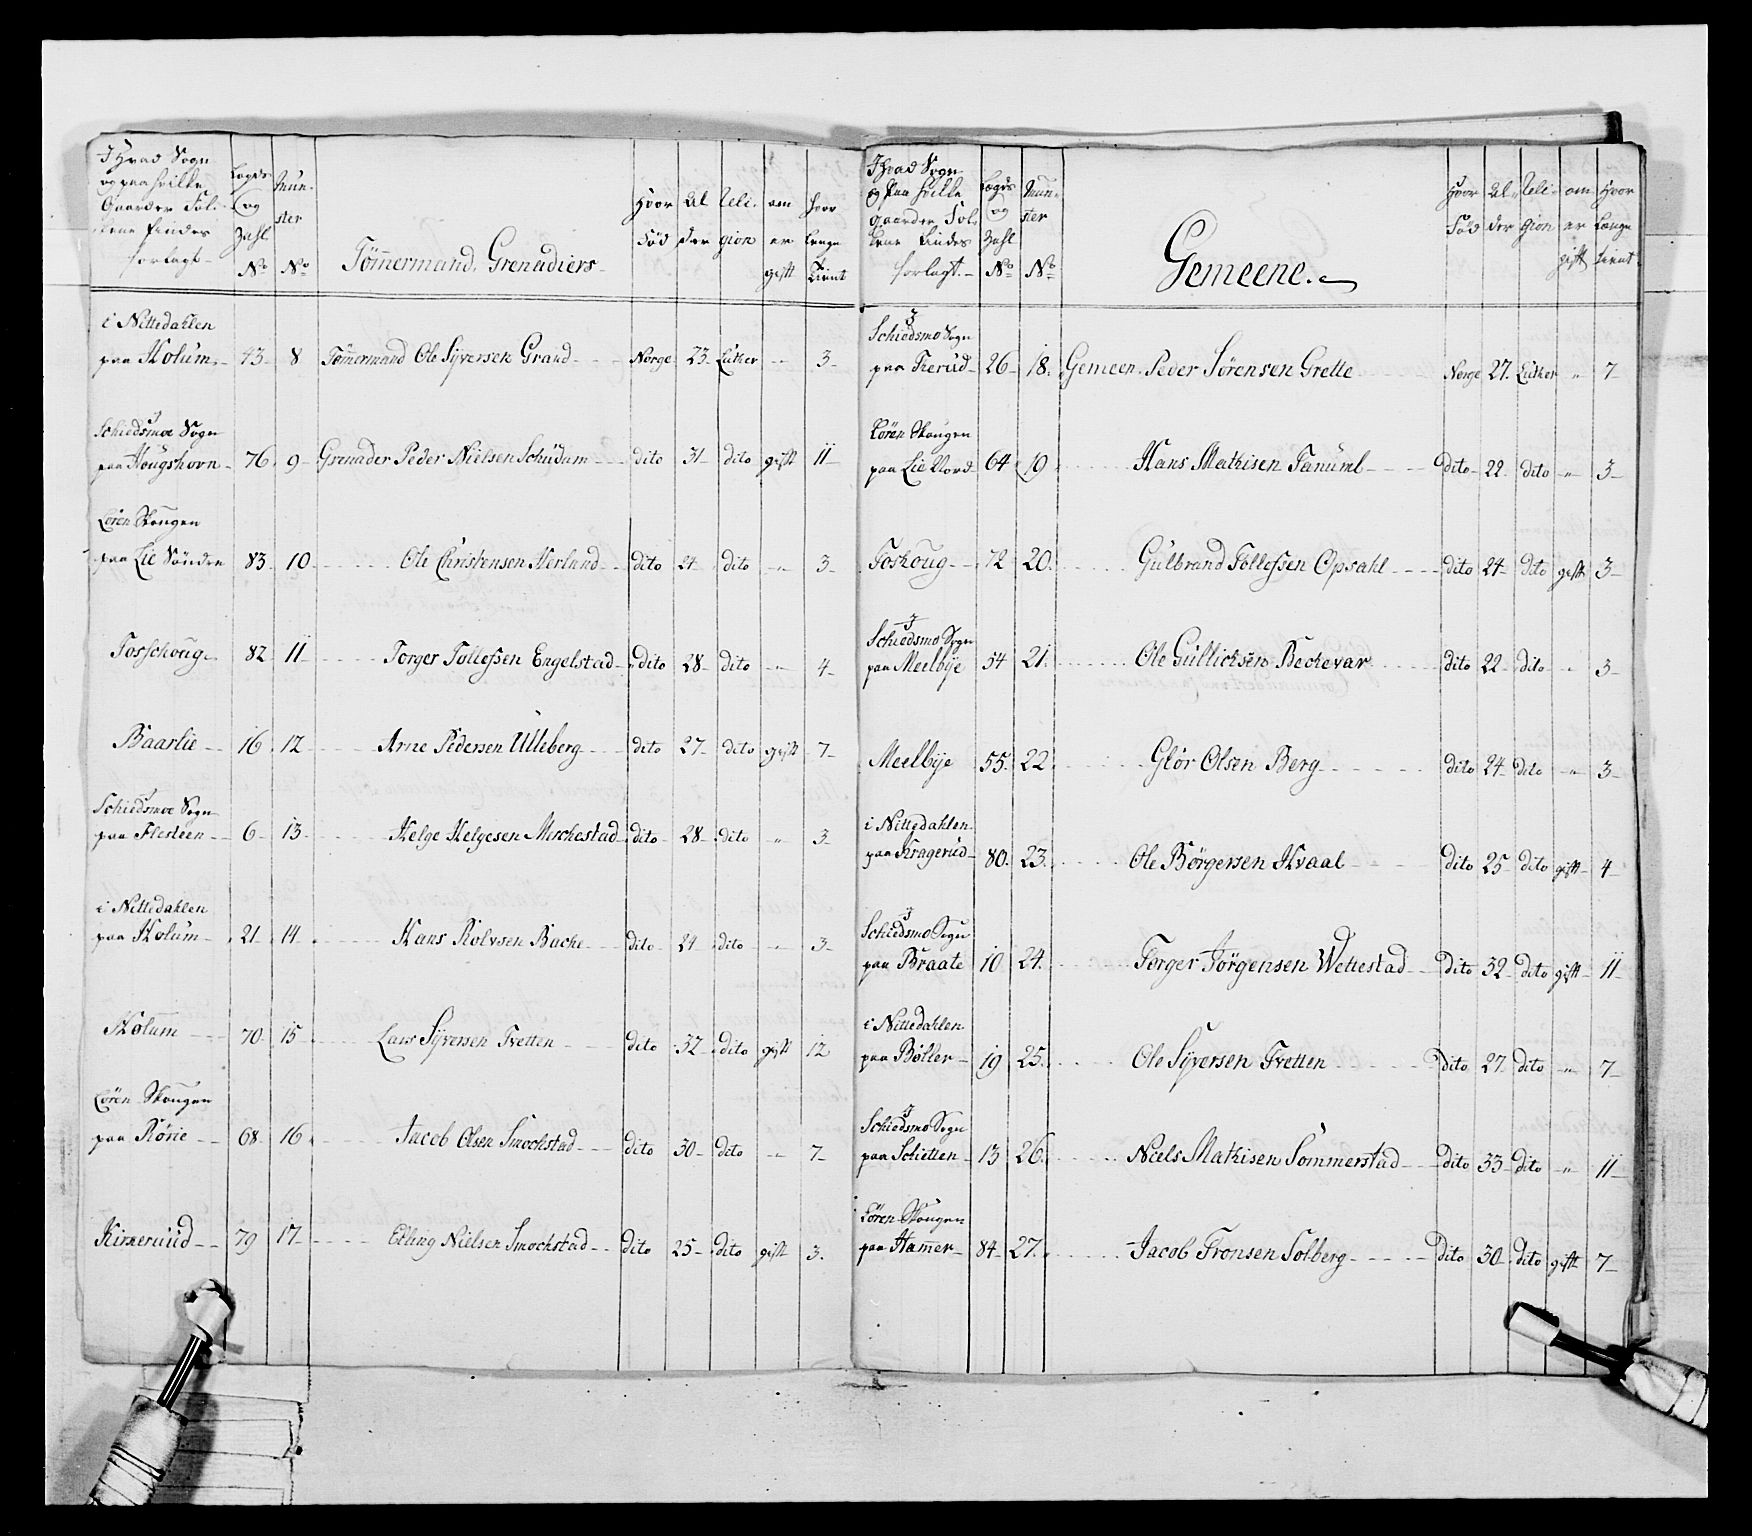 I Hvad Sogn
og paa hvilke
Gaarder Fol-
kene findes
forlagt
Lægds
og
Zahl
No
Mun-
ster
No
Tømmermand. Grenadiers
Hvor
Fød
Al
der
Reli-
gion
om
er
gift
Hvor
Længe
Tient
i Nittedahlen
paa Holum 43 8 Tømmermand Ole Syversen Grand Norge 23 Luther " 3
I
Schiedsmoe Sogn
paa Hougshorn 76 9 Grenader Peder Nielsen Schudam dito 31 dito gift 11
Lören Skougen
paa Lie Sönden 83 10 Ole Christensen Herland dito 24 dito " 3
Fosschoug 82 11 Torger Tollefsen Engelstad dito 28 dito " 4
Baarlie 16 12 Arne Pedersen Ulleberg dito 27 dito gift 7
I
Schiedsmoe Sogn
paa Flesteen 6 13 Helge Helgesen Merchestad dito 28 dito " 3
i Nittedahlen
paa Holum 21 14 Hans Rolvsen Bache dito 24 dito " 3
Holum 70 15 Lars Syversen Tvetten dito 32 dito gift 12
Lören Skougen
paa Rönie 68 16 Jacob Olsen Smochstad dito 30 dito " 7
Kirkeruud 79 17 Elling Nielsen Smochstad dito 25 dito gift 3
I Hvad Sogn
og Paa hvilke
Gaarder Fol-
kene findes
forlagt
Lægds
og
Zahl
No
Mun-
ster
No
Gemeene.
Hvor
Fød
Al-
der
Reli-
gion
om
er
gift
Hvor
Længe
tient
I
Schiedsmo Sogn
paa Tierud 26 18 Gemeen Peder Sörensen Grette Norge 27 Luther " 7
Lören Skougen
paa Lie Nord 64 19 Hans Mathisen Fanuml dito 22 dito " 3
Foskoug 72 20 Gulbrand Tollefsen Opsahl dito 24 dito gift 3
I
Schiedsmo Sogn
paa Meelbye 54 21 Ole Gullichsen Bechevar dito 22 dito " 3
Meelbye 55 22 Glör Olsen Berg dito 24 dito " 3
i Nittedahlen
paa Kragerud 80 23 Ole Börgersen Hvaal dito 25 dito gift 4
I
Schiedsmo Sogn
paa Braate 10 24 Torger Jörgensen Wettestad dito 32 dito gift 11
i Nittedahlen
paa Böller 19 25 Ole Syversen Tvetten dito 27 dito " 7
I
Schiedsmo Sogn
paa Schietten 13 26 Niels Mathisen Sommerstad dito 33 dito " 11
Lören Skougen
paa Hamer 84 27 Jacob Tronsen Solberg dito 30 dito gift 7